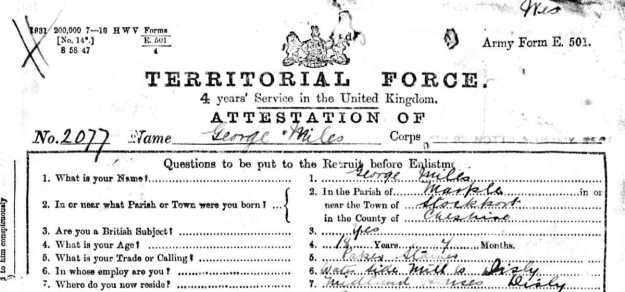 Wes
1931 200,000 7—13 HWV Forms
[No. 14*.] E. 501
8 58 47 4
Army Form E. 501.
TERRITORIAL FORCE.
4 years' Service in the United Kingdom.
ATTESTATION OF
No. 2077 Name George Miles Corps
Questions to be put to the Recruit before Enlistm
1. What is your Name? 1. George Miles
2. In or near what Parish or Town were you born? 2. In the Parish of Marple in or
near the Town of Stockport
in the County of Cheshire
3. Are you a British Subject? 3. Yes
4. What is your Age? 4. 18 Years 7 Months.
5. What is your Trade or Calling? 5. Paper Stainer
6. In whose employ are you? 6. Mill Co Disly
7. Where do you now reside? 7. Midland Disly
d to him conspicuously